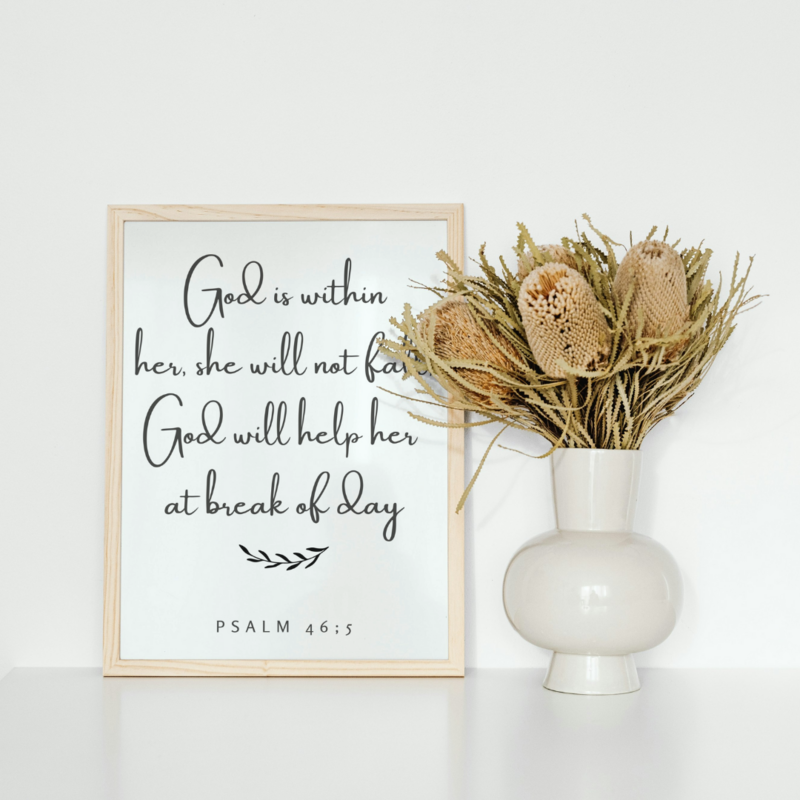 God is within
her, she will not fall.
God will help her
at break of day
PSALM 46;5